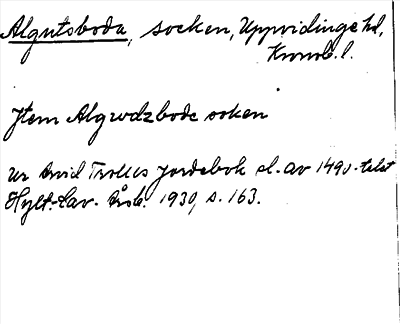 Algutsboda, socken, Uppvidinge hd,
Kronob. l.
Jtem Algwdzbode soken
ur Arvid Trolles jordebok sl. av 1490-talet
Hylt.-Cav. Årsb. 1930, s. 163.